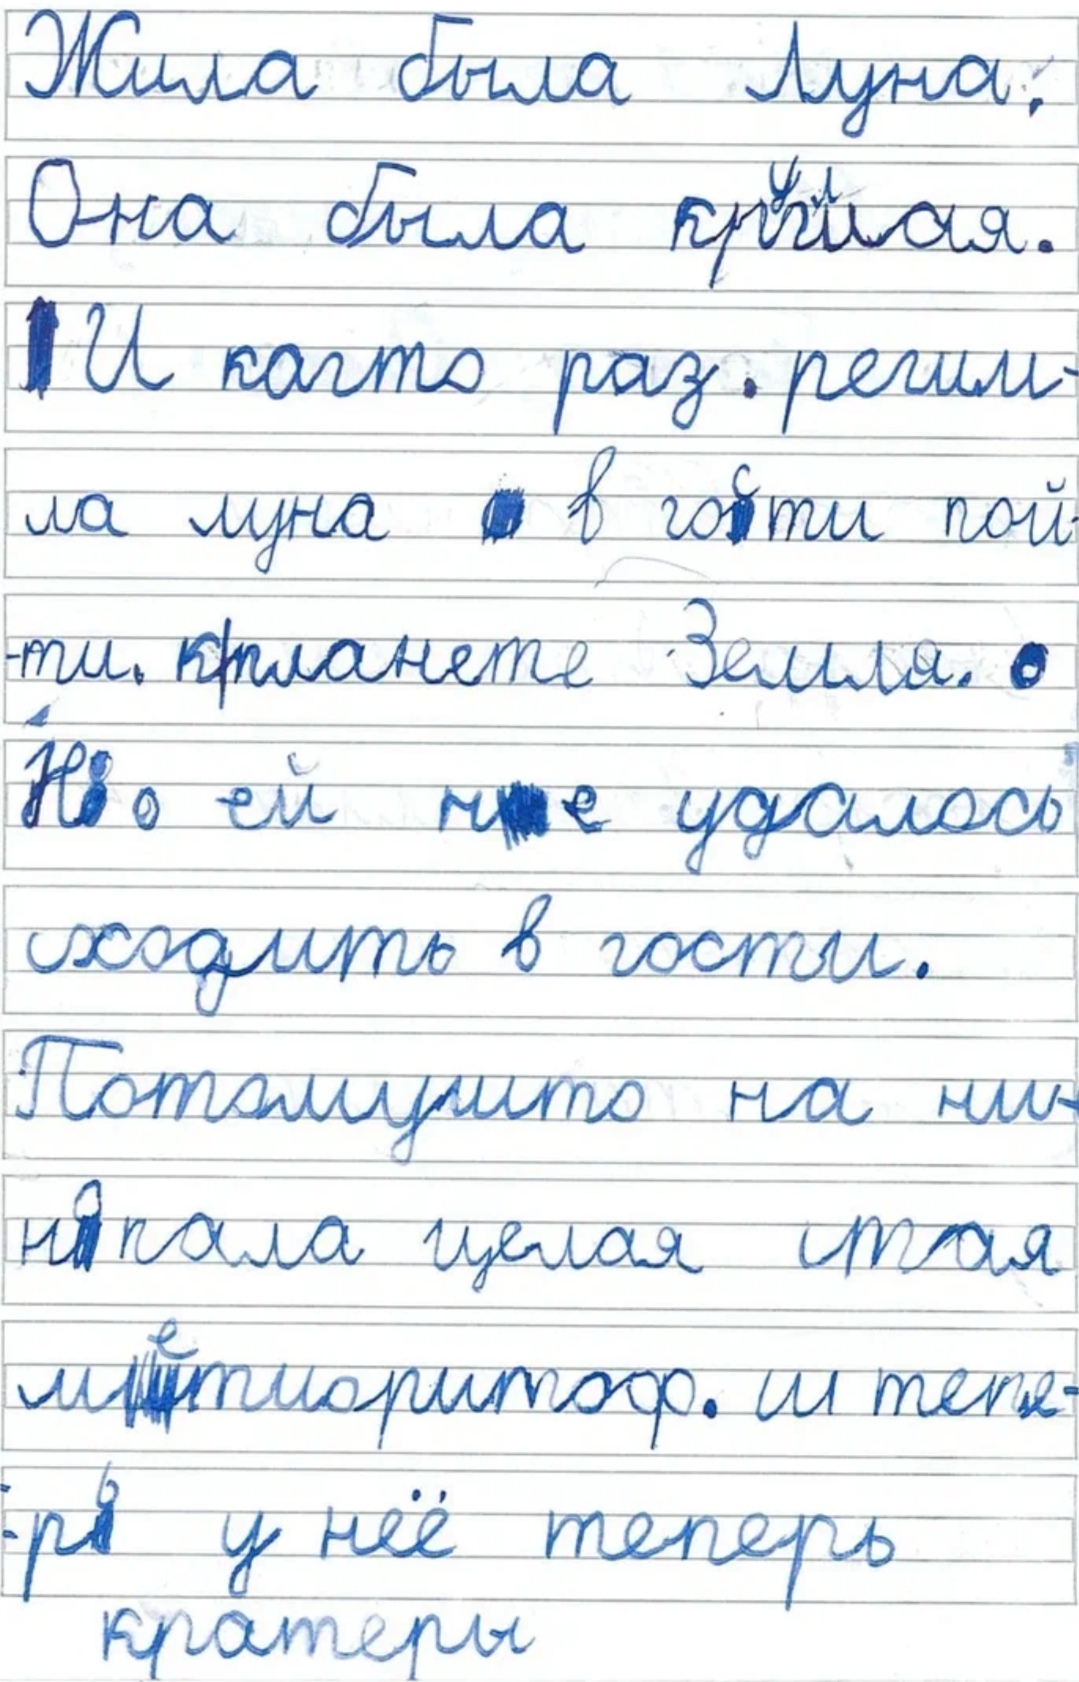 Жила была Луна.
Она была круглая.
И кагто раз. решил-
ла луна в гости пой-
-ти. к планете Земля.
Но ей не удалось
сходить в гости.
Потомушто на ни-
напала целая стая
метиоритоф. и тепе-
-рь у неё теперь
кратеры